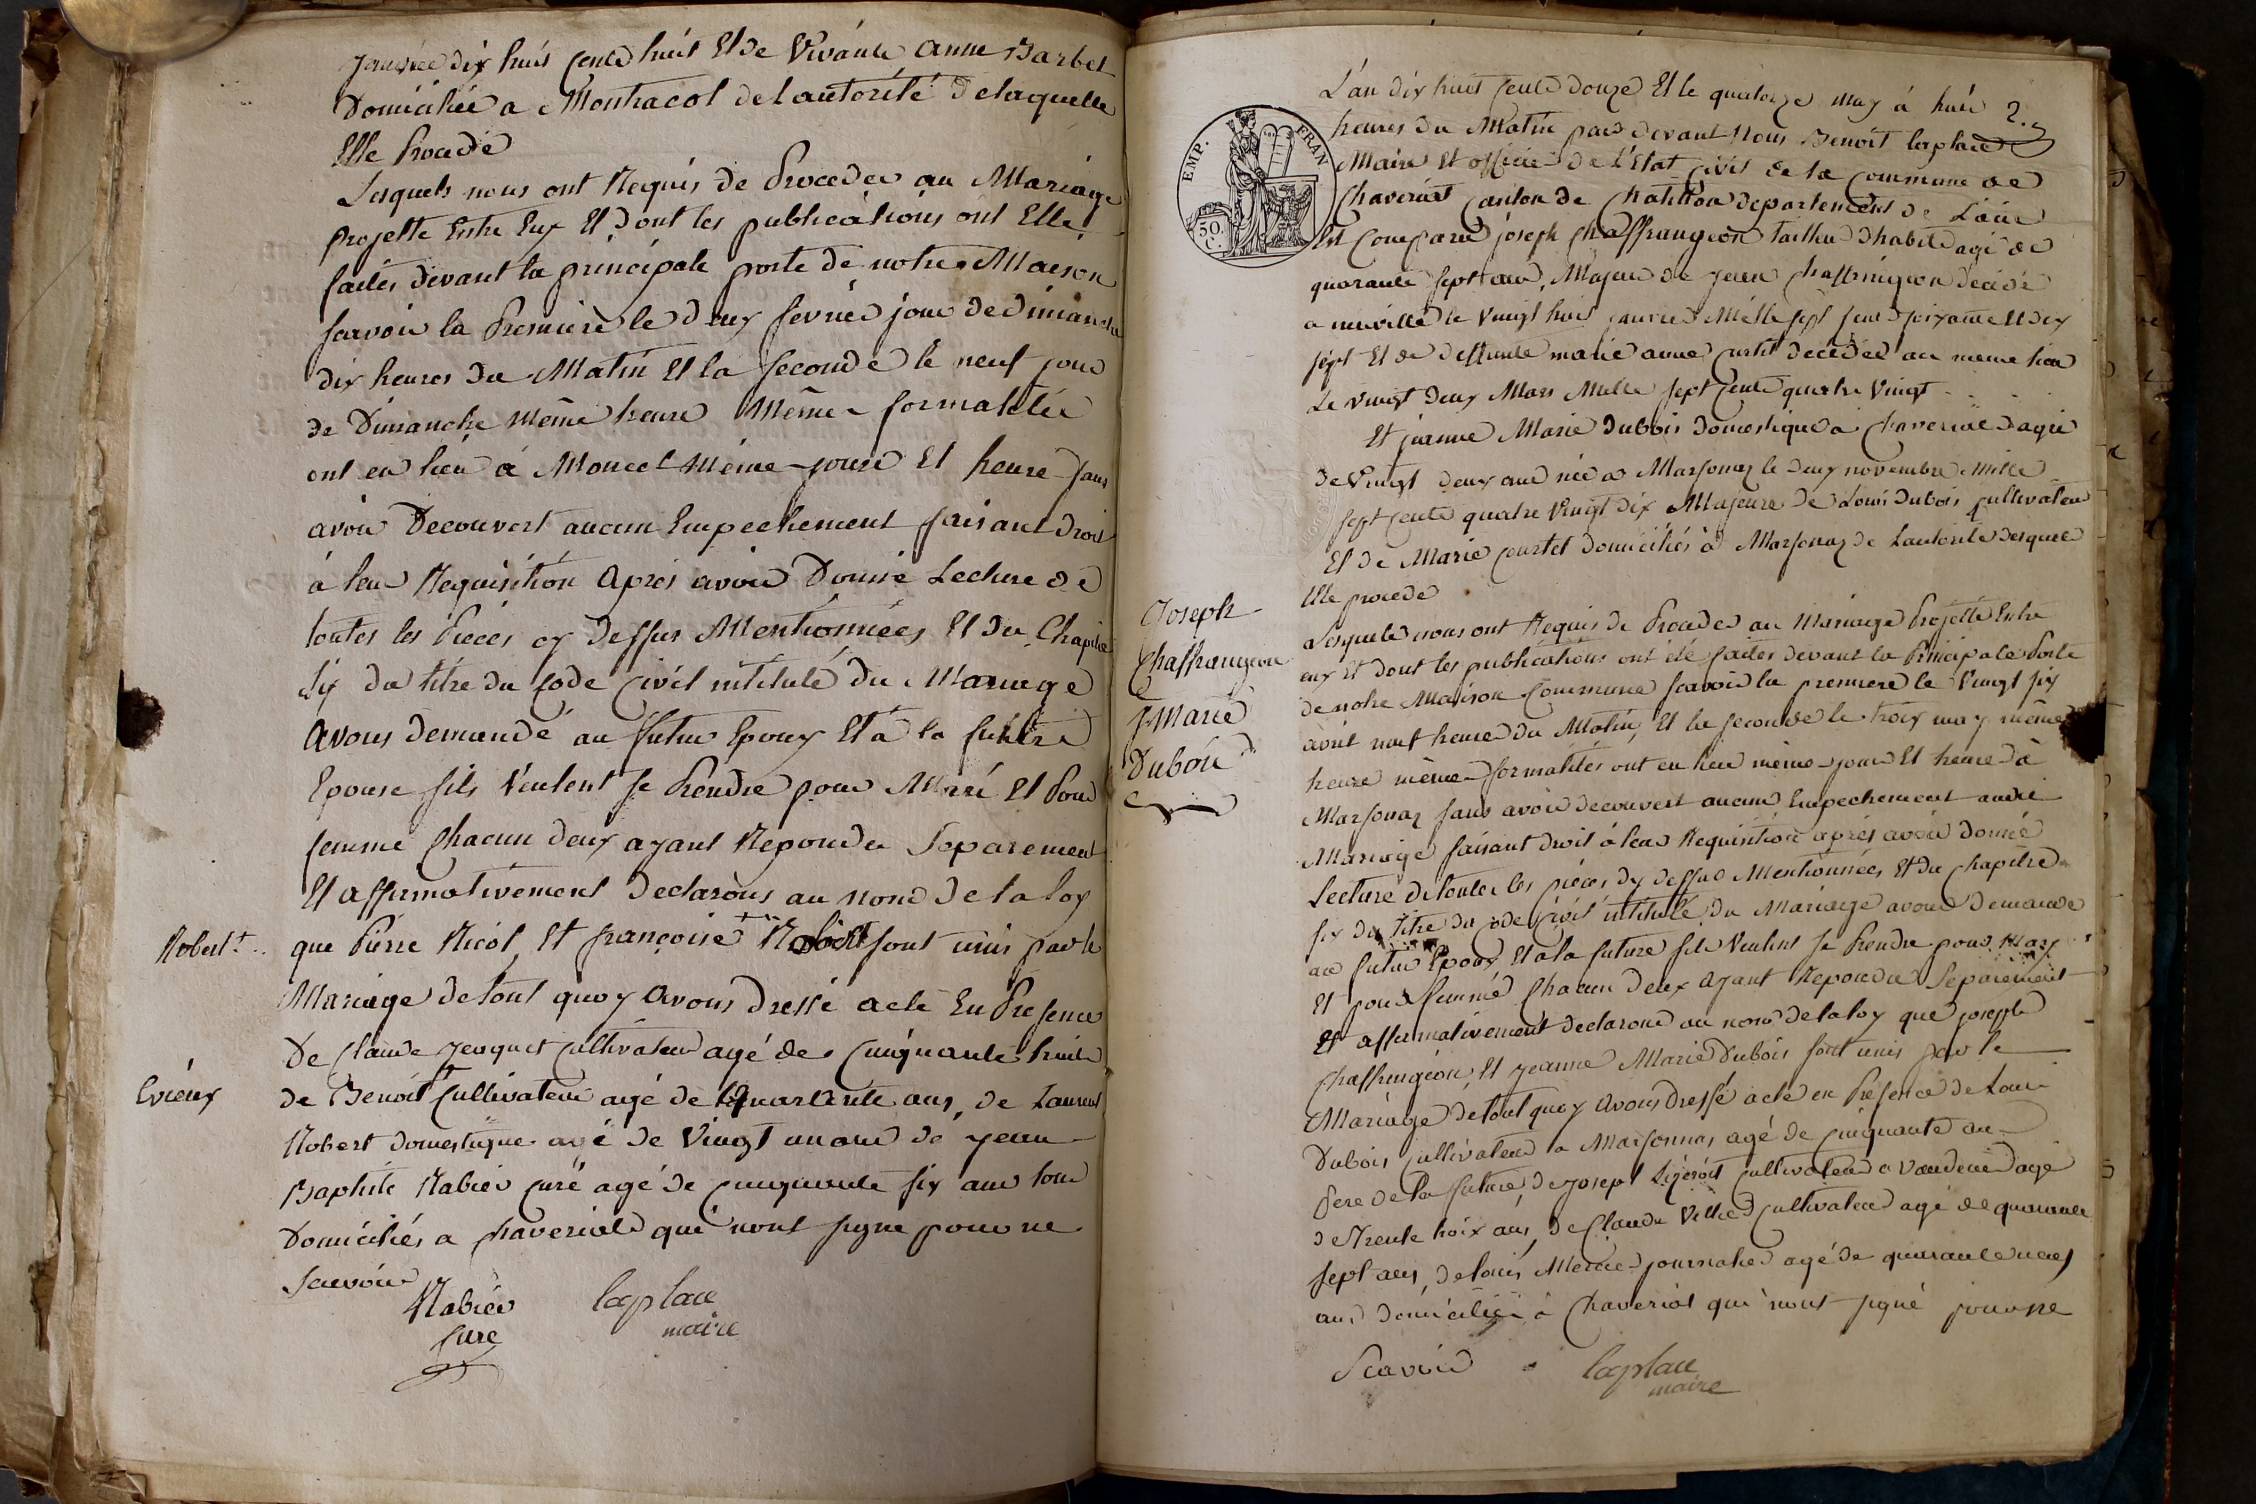 janvier dix huit cents huit Et de Vivante anne Barbet
Domiciliée a Montracol de l autorité de laquelle
Elle Procede
Lesquels nous ont Requis de Proceder au Mariage
projetté Entre Eux Et dont les publications ont Etté
faites devant la principale porte de notre Maison
scavoir la Premiere le deux fevrier jour de dimanche
dix heures du Matin Et la seconde le neuf jour
de Dimanche même heure Même formalitée
ont eu lieu à Moncel même jours Et heure sans
avoir Decouvert aucun Empechement faisant Droit
à leur Requisition après avoir Donné Lecture de
toutes les Pieces cy dessus Mentionnées Et du Chapitre
Six du titre du Code Civil intitulé du Mariage
avons demandé au futur Epoux Et à la future
Epouse sils Veulent se Prendre pour Mari Et Pour
femme Chacun deux ayant Repondu Separement
Et affirmativement declarons au nom de la loy
Robert +
que Pierre Nicol, Et françoise + sont unis par le
Mariage de tout quoy avons dressé acte En Presence
De Claude jenquet Cultivateur agé de Cinquante huit
Evieux
de Benoit + Cultivateur agé de quarante ans, de Laurent
Robert domestique agé de Vingt un ans de jean
Baptiste Rabier Curé agé de Cinquante six ans tous
Domiciliés a Chaveriat qui n'ont signé pour ne
Scavoir
Rabier Laplace
Curé maire
L'an dix huit cents douze Et le quatorze may à huit 2.
heures du Matin par devant Nous Benoit Laplace
Maire Et officier de L'Etat Civil de la Commune de
Chaveriat Canton de Chatillon departement de L'ain
EMP. FRAN
50. C.
Est Comparu joseph Chaffrangeon tailleur d'habits agé de
quarante sept ans, Majeur de jean Chaffringeon décédé
a neuville le Vingt huit janvier Mille sept cent soixante Et dix
sept Et de deffunte marie anne Curtil decedée au meme lieu
Le vingt deux Mars Mille sept cents quatre Vingt
Et jeanne Marie Dubois domestique à Chaveriat agée
de Vingt deux ans née a Marsonaz le deux novembre Mille
sept cents quatre Vingt dix Majeure de Louis Dubois Cultivateur
Et de Marie Courtet domiciliés à Marsonaz de Lautorité desquels
Elle procede
Lesquels nous ont Requis de Proceder au Mariage Projetté Entre
eux Et dont les publications ont été faites devant la Principale Porte
de notre Maison Commune scavoir la premiere le Vingt six
avril neuf heures du Matin, Et la seconde le trois may même
heure même formalités ont eu lieu même jour Et heure à
Marsonaz sans avoir decouvert aucun Empechement audit
Mariage faisant droit à leur Requisition après avoir donné
Lecture de toutes les pieces cy dessus Mentionnées Et du Chapitre
six du titre du Code Civil intitulé du Mariage avons demandé
au futur Epoux Et à la future sils Veulent se Prendre pour Mary
Et pour femme Chacun deux ayant Repondu Séparement
Et affirmativement declarons au nom de la loy que joseph
Chaffringeon, Et jeanne Marie Dubois sont unis par le
Mariage de tout quoy avons dressé acte en Présence de Louis
Dubois Cultivateur a Marsonnas agé de Cinquante ans
Pere de la future, de joseph Cultivateur a Vandeins agé
de Trente trois ans, de Claude Cultivateur agé de quarante
sept ans, de louis Mercier journalier agé de quarante neuf
ans domiciliés à Chaveriat qui n'ont signé pour ne
Scavoir Laplace
maire
Joseph
Chaffrangeon
&
J Marie
Dubois